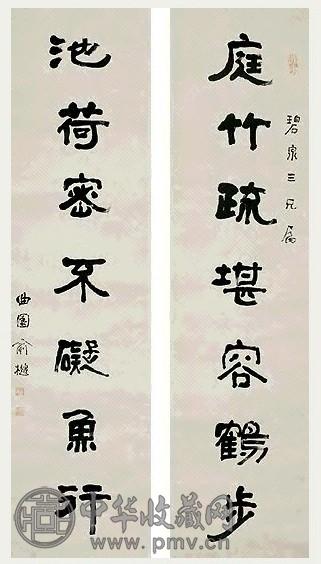 碧泉三兄属
庭竹疏堪容鶴步
池荷密不礙魚行
曲園俞樾
中华收藏网
www.pmv.cn